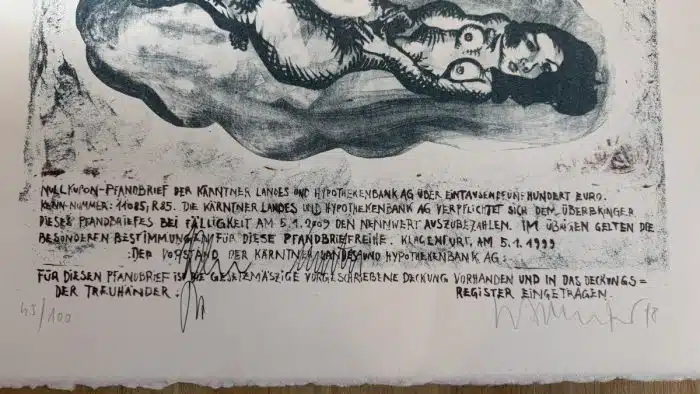 NULLKUPON-PFANDBRIEF DER KÄRNTNER LANDES UND HYPOTHEKENBANK AG ÜBER EINTAUSENDFÜNFHUNDERT EURO.
KENN-NUMMER: 11085, R85. DIE KÄRNTNER LANDES UND HYPOTHEKENBANK AG VERPFLICHTET SICH DEM ÜBERBRINGER
DIESES PFANDBRIEFES BEI FÄLLIGKEIT AM 5.1.2009 DEN NENNWERT AUSZUBEZAHLEN. IM ÜBRIGEN GELTEN DIE
BESONDEREN BESTIMMUNGEN FÜR DIESE PFANDBRIEFREIHE. KLAGENFURT, AM 5.1.1999
DER VORSTAND DER KÄRNTNER LANDES UND HYPOTHEKENBANK AG:
FÜR DIESEN PFANDBRIEF IST DIE GESETZMÄSZIGE VORGESCHRIEBENE DECKUNG VORHANDEN UND IN DAS DECKUNGS=
DER TREUHÄNDER: REGISTER EINGETRAGEN.
45/100 98